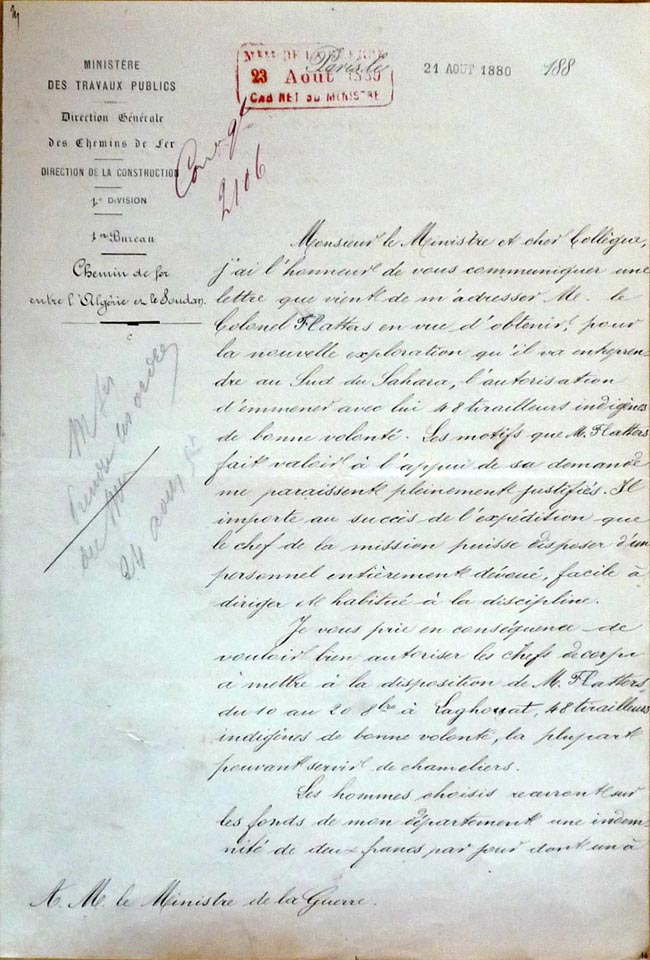 MINISTÈRE
DES TRAVAUX PUBLICS
Direction Générale
des Chemins de Fer
DIRECTION DE LA CONSTRUCTION
1e DIVISION
1er Bureau
Chemin de fer
entre l'Algérie et le Soudan.
23 Août 1880
CABINET DU MINISTRE
Paris, le 21 AOUT 1880 188
2106
Monsieur le Ministre et cher Collègue,
j'ai l'honneur de vous communiquer une
lettre que vient de m'adresser M. le
Colonel Flatters en vue d'obtenir, pour
la nouvelle exploration qu'il va entrepren-
dre au Sud du Sahara, l'autorisation
d'emmener avec lui 48 tirailleurs indigènes
de bonne volonté. Les motifs que M. Flatters
fait valoir à l'appui de sa demande
me paraissent pleinement justifiés. Il
importe au succès de l'expédition que
le chef de la mission puisse disposer d'un
personnel entièrement dévoué, facile à
diriger et habitué à la discipline.
Je vous prie en conséquence de
vouloir bien autoriser les chefs de corps
à mettre à la disposition de M. Flatters,
du 10 au 20 8bre à Laghouat, 48 tirailleurs
indigènes de bonne volonté, la plupart
pouvant servir de chameliers.
Les hommes choisis recevront sur
les fonds de mon département une indem-
nité de deux francs par jour dont un à
A. M. le Ministre de la Guerre.
24 août